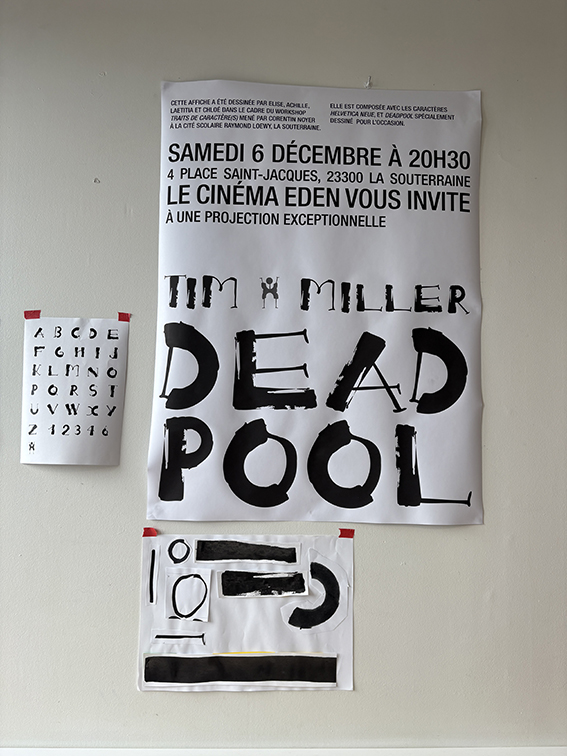 CETTE AFFICHE A ÉTÉ DESSINÉE PAR ELISE, ACHILLE,
LAETITIA ET CHLOÉ DANS LE CADRE DU WORKSHOP
TRAITS DE CARACTÈRE(S) MENÉ PAR CORENTIN NOYER
À LA CITÉ SCOLAIRE RAYMOND LOEWY, LA SOUTERRAINE.
ELLE EST COMPOSÉE AVEC LES CARACTÈRES
HELVETICA NEUE, ET DEADPOOL SPÉCIALEMENT
DESSINÉ POUR L'OCCASION.
SAMEDI 6 DÉCEMBRE À 20H30
4 PLACE SAINT-JACQUES, 23300 LA SOUTERRAINE
LE CINÉMA EDEN VOUS INVITE
À UNE PROJECTION EXCEPTIONNELLE
TIM MILLER
DEAD
POOL
A B C D E
F G H I J
K L M N O
P Q R S T
U V W X Y
Z 1 2 3 4 6